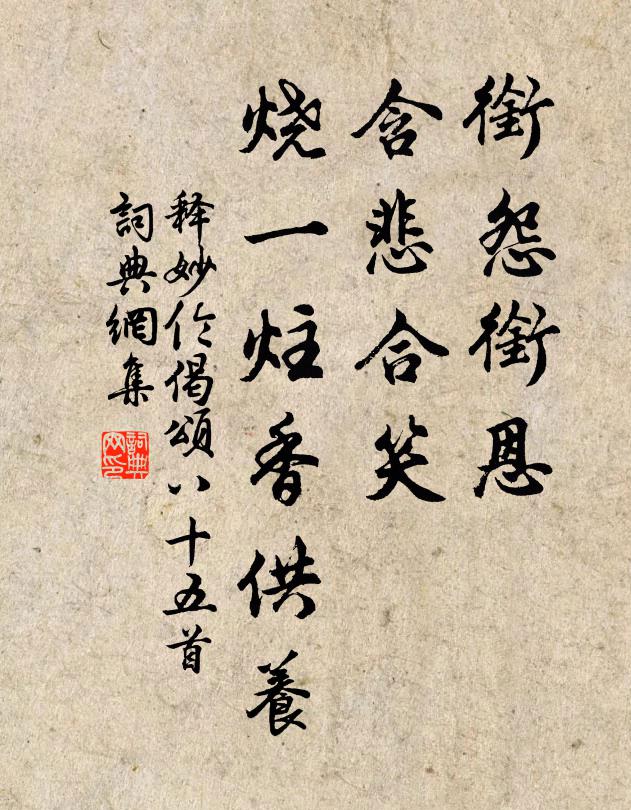 銜怨銜恩
含悲合笑
烧一炷香供養
释妙伦偈颂八十五首
詞典網集
詞典网印